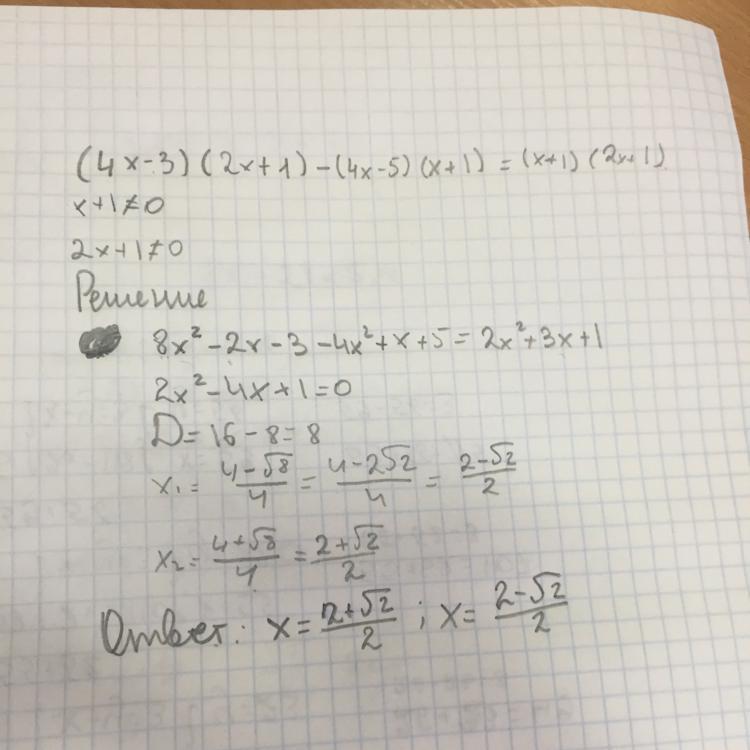 (4x-3)(2x+1)-(4x-5)(x+1)=(x+1)(2x+1)
x+1≠0
2x+1≠0
Решение
8x²-2x-3-4x²+x+5=2x²+3x+1
2x²-4x+1=0
D=16-8=8
x₁= (4-√8)/4 = (4-2√2)/4 = (2-√2)/2
x₂= (4+√8)/4 = (2+√2)/2
Ответ: x= (2+√2)/2 ; x= (2-√2)/2